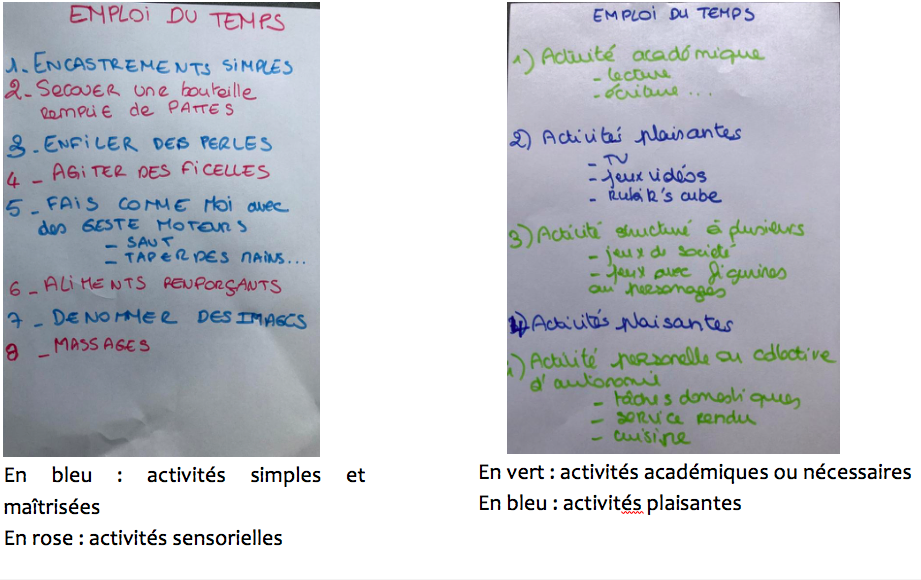 EMPLOI DU TEMPS
1. ENCASTREMENTS SIMPLES
2 - SECOUER une bouteille
REMPLIE de PATES
3. ENFILER DES PERLES
4 - AGITER DES FICELLES
5 - FAIS COMME MOI avec
des GESTE MOTEURS
- SAUT
- TAPER DES MAINS...
6 - ALIMENTS RENFORÇANTS
7 - DENOMMER DES IMAGES
8 - MASSAGES
En bleu : activités simples et
maîtrisées
En rose : activités sensorielles
EMPLOI DU TEMPS
1) Activité académique
- lecture
- écriture...
2) Activités plaisantes
- TV
- jeux vidéos
- Rubik's cube
3) Activité structuré à plusieurs
- jeux de société
- jeux avec figurines
ou personages
4) Activités plaisantes
1) Activité personelle ou collective
d'autonomie
- tâches domestiques
- service rendu
- cuisine
En vert : activités académiques ou nécessaires
En bleu : activités plaisantes